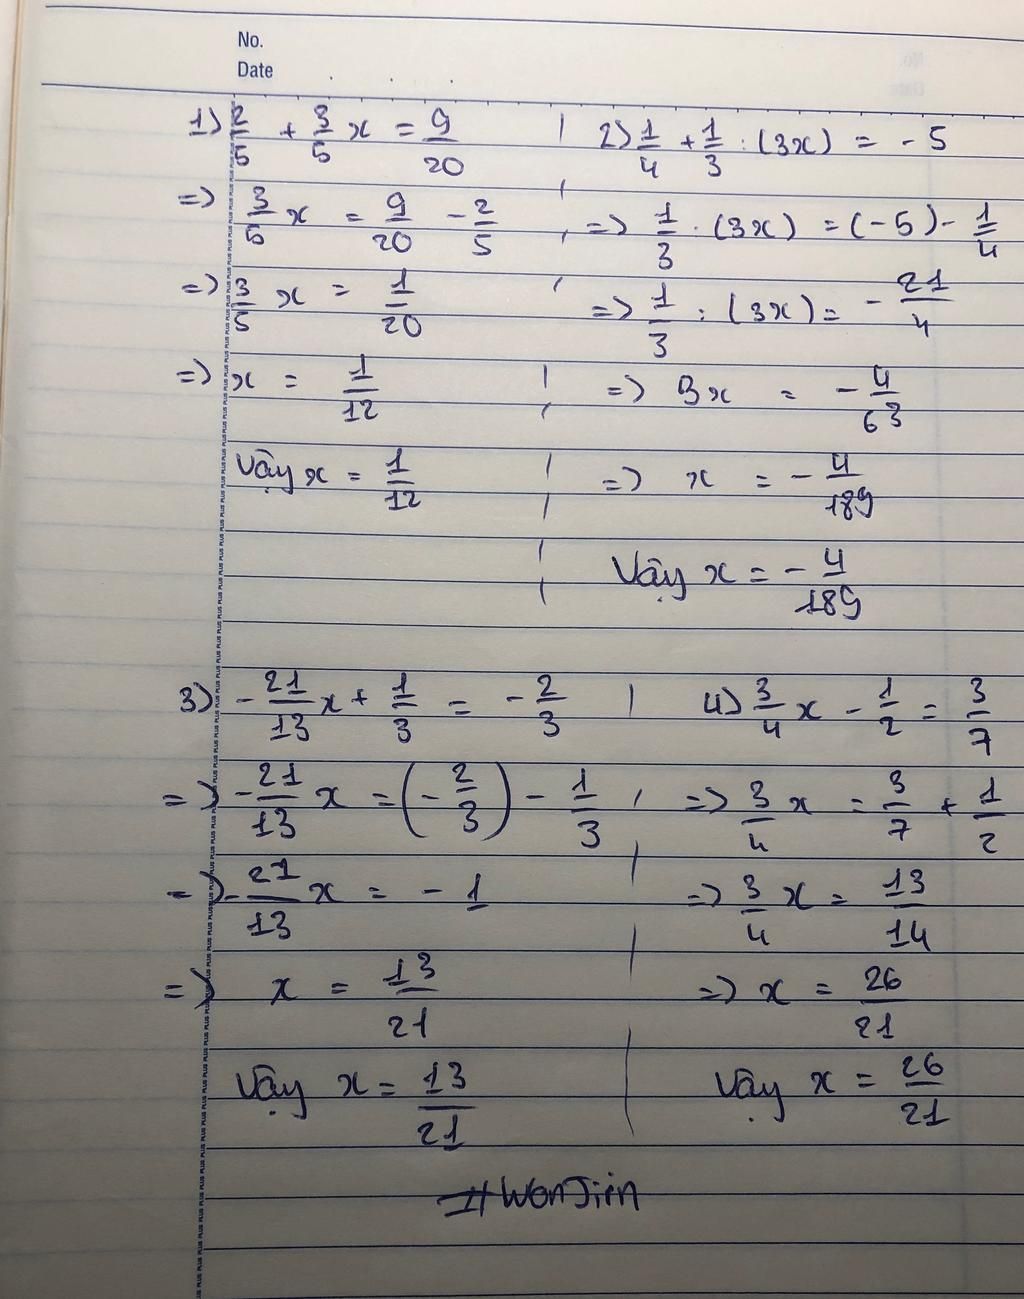 No.
Date
1) 2/5 + 3/5 x = 9/20
=> 3/5 x = 9/20 - 2/5
=> 3/5 x = 1/20
=> x = 1/12
Vậy x = 1/12
2) 1/4 + 1/3 : (3x) = - 5
=> 1/3 : (3x) = (-5) - 1/4
=> 1/3 : (3x) = - 21/4
=> 3x = - 4/63
=> x = - 4/189
Vậy x = - 4/189
3) - 21/13 x + 1/3 = - 2/3
=> - 21/13 x = (- 2/3) - 1/3
=> - 21/13 x = - 1
=> x = 13/21
Vậy x = 13/21
4) 3/4 x - 1/2 = 3/7
=> 3/4 x = 3/7 + 1/2
=> 3/4 x = 13/14
=> x = 26/21
Vậy x = 26/21
#WonJiin